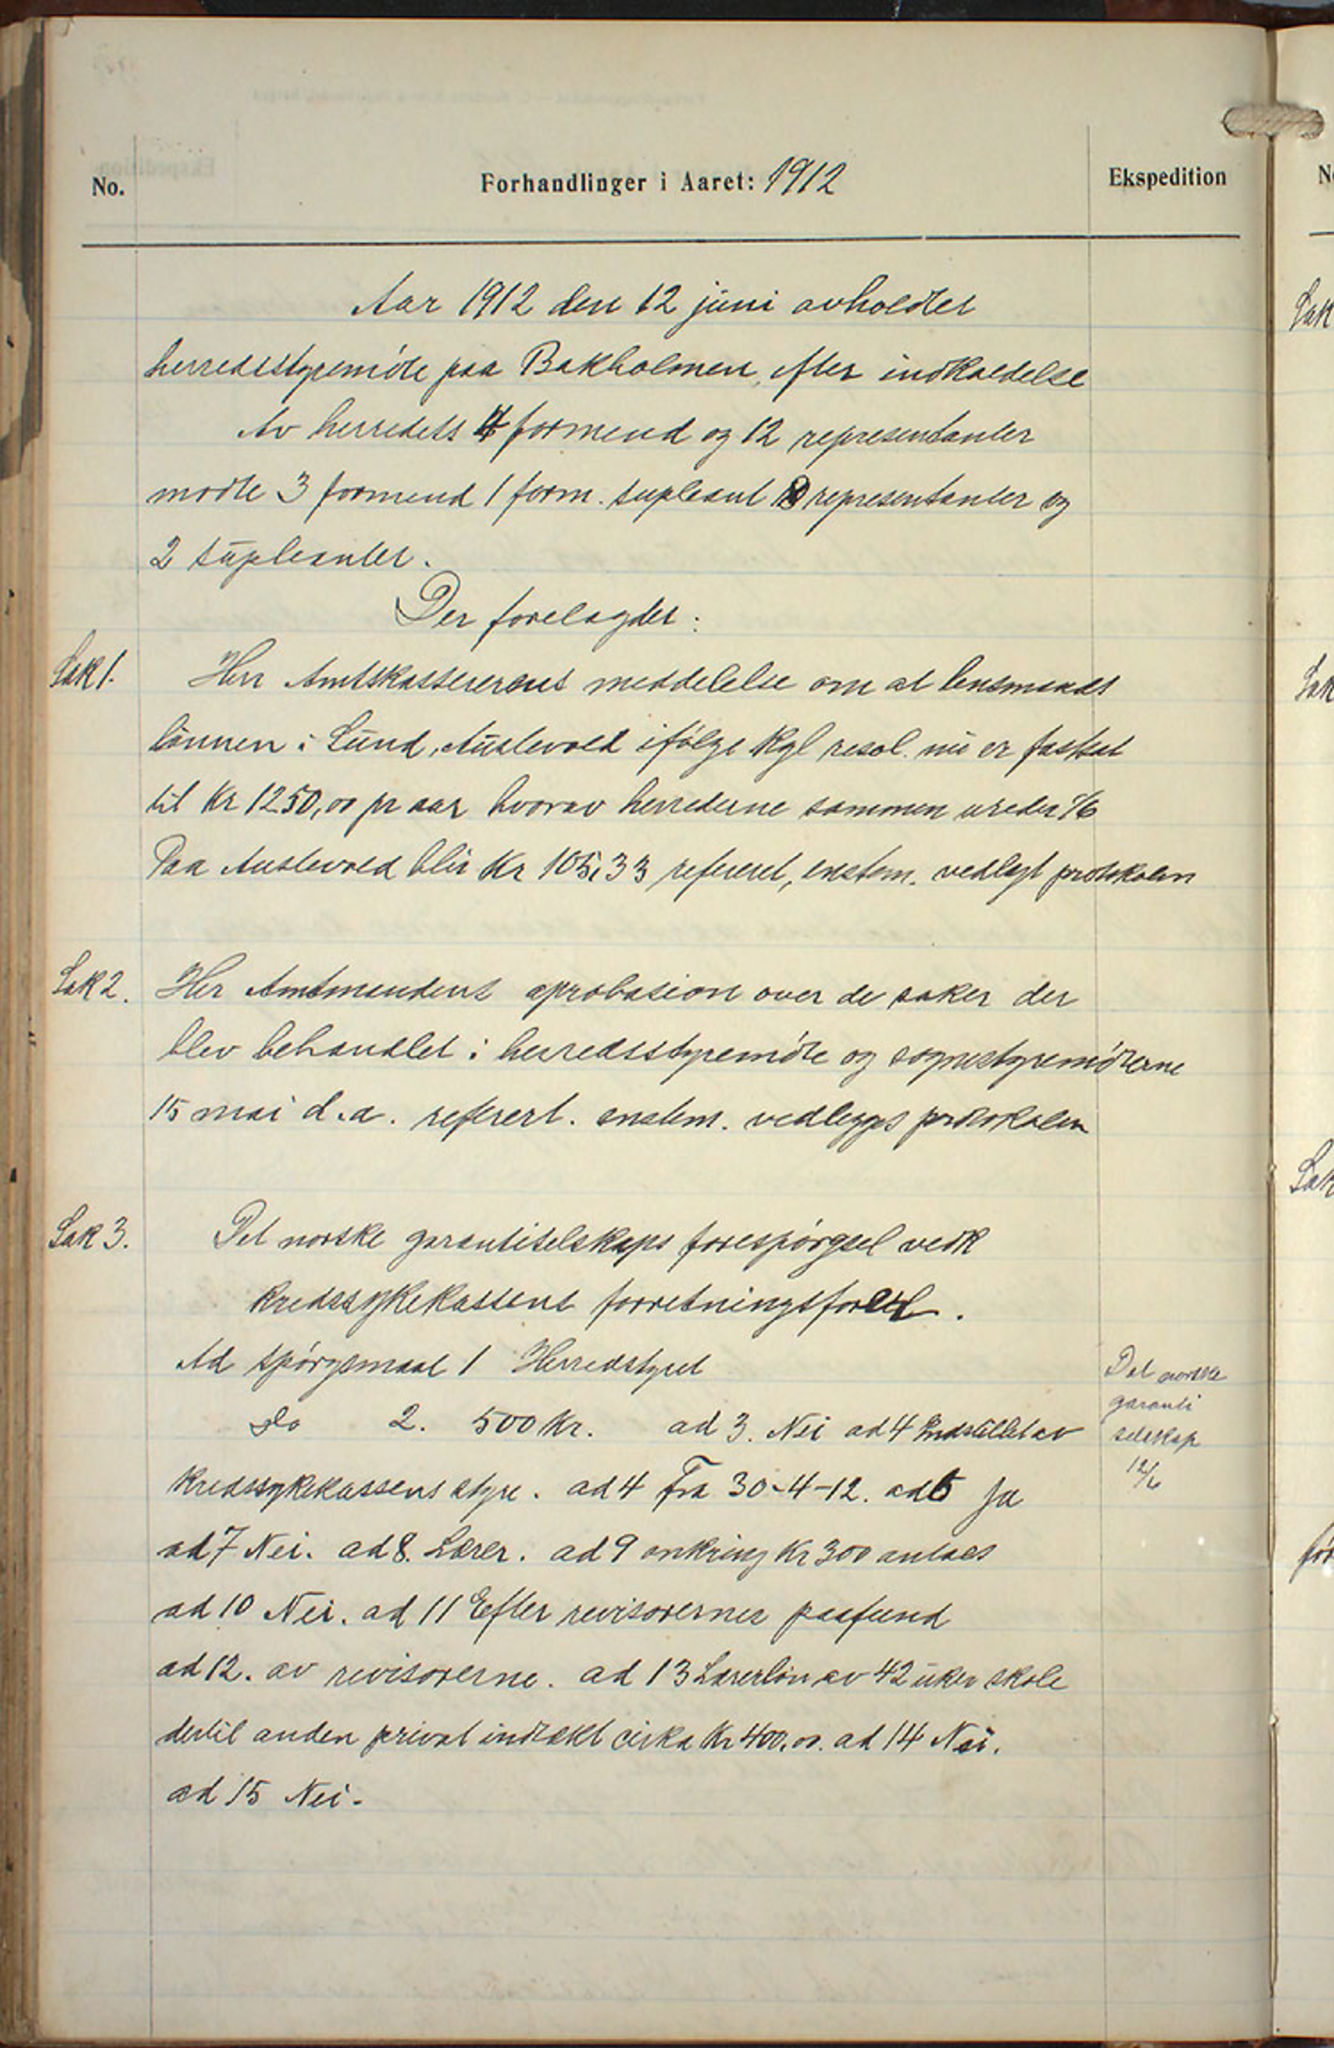 No.
Forhandlinger i Aaret: 1912
Ekspedition
Aar 1912 den 12 juni avholdtes
herredsstyremöte paa Bakholmen, efter indkaldelse
Av herredets 4 formend og 12 representanter
mödte 3 formend 1 form. supleant 10 representanter og
2 supleanter.
Der forelagdes:
Sak 1.
Herr Amtskassererens meddelelse om at lensmands
lönnen i Sund, Austevold ifölge kgl resol. nu er fastsat
til Kr 1250,00 pr aar hvorav herrederne sammen utreder 1/6
Paa Austevold blir Kr 105,33 refereret, enstem. vedlagt protokolen
Sak 2.
Her Amtmandens aprobasion over de saker der
blev behandlet i herredsstyremöte og sognestyremöterne
15 mai d.a. referert. enstem. vedlegges protokolen
Sak 3.
Det norske garantiselskaps forespörgsel vedk
kredssykekassens forretningsförsel.
Ad spörgsmaal 1 Herredstyret
Do 2. 500 Kr. ad 3. Nei ad 4 Indstillet av
kredssykekassens styre. ad 4 Fra 30-4-12. ad 6 Ja
ad 7 Nei. ad 8. Lærer. ad 9 omkring Kr 300 antaes
ad 10 Nei. ad 11 Efter revisorernes paafund
ad 12. av revisorerne. ad 13 Lærerlön av 42 uker skole
dertil anden privat indtækt cirka Kr 400,00. ad 14 Nei.
ad 15 Nei.
Det norske
garanti
selskap
12/6